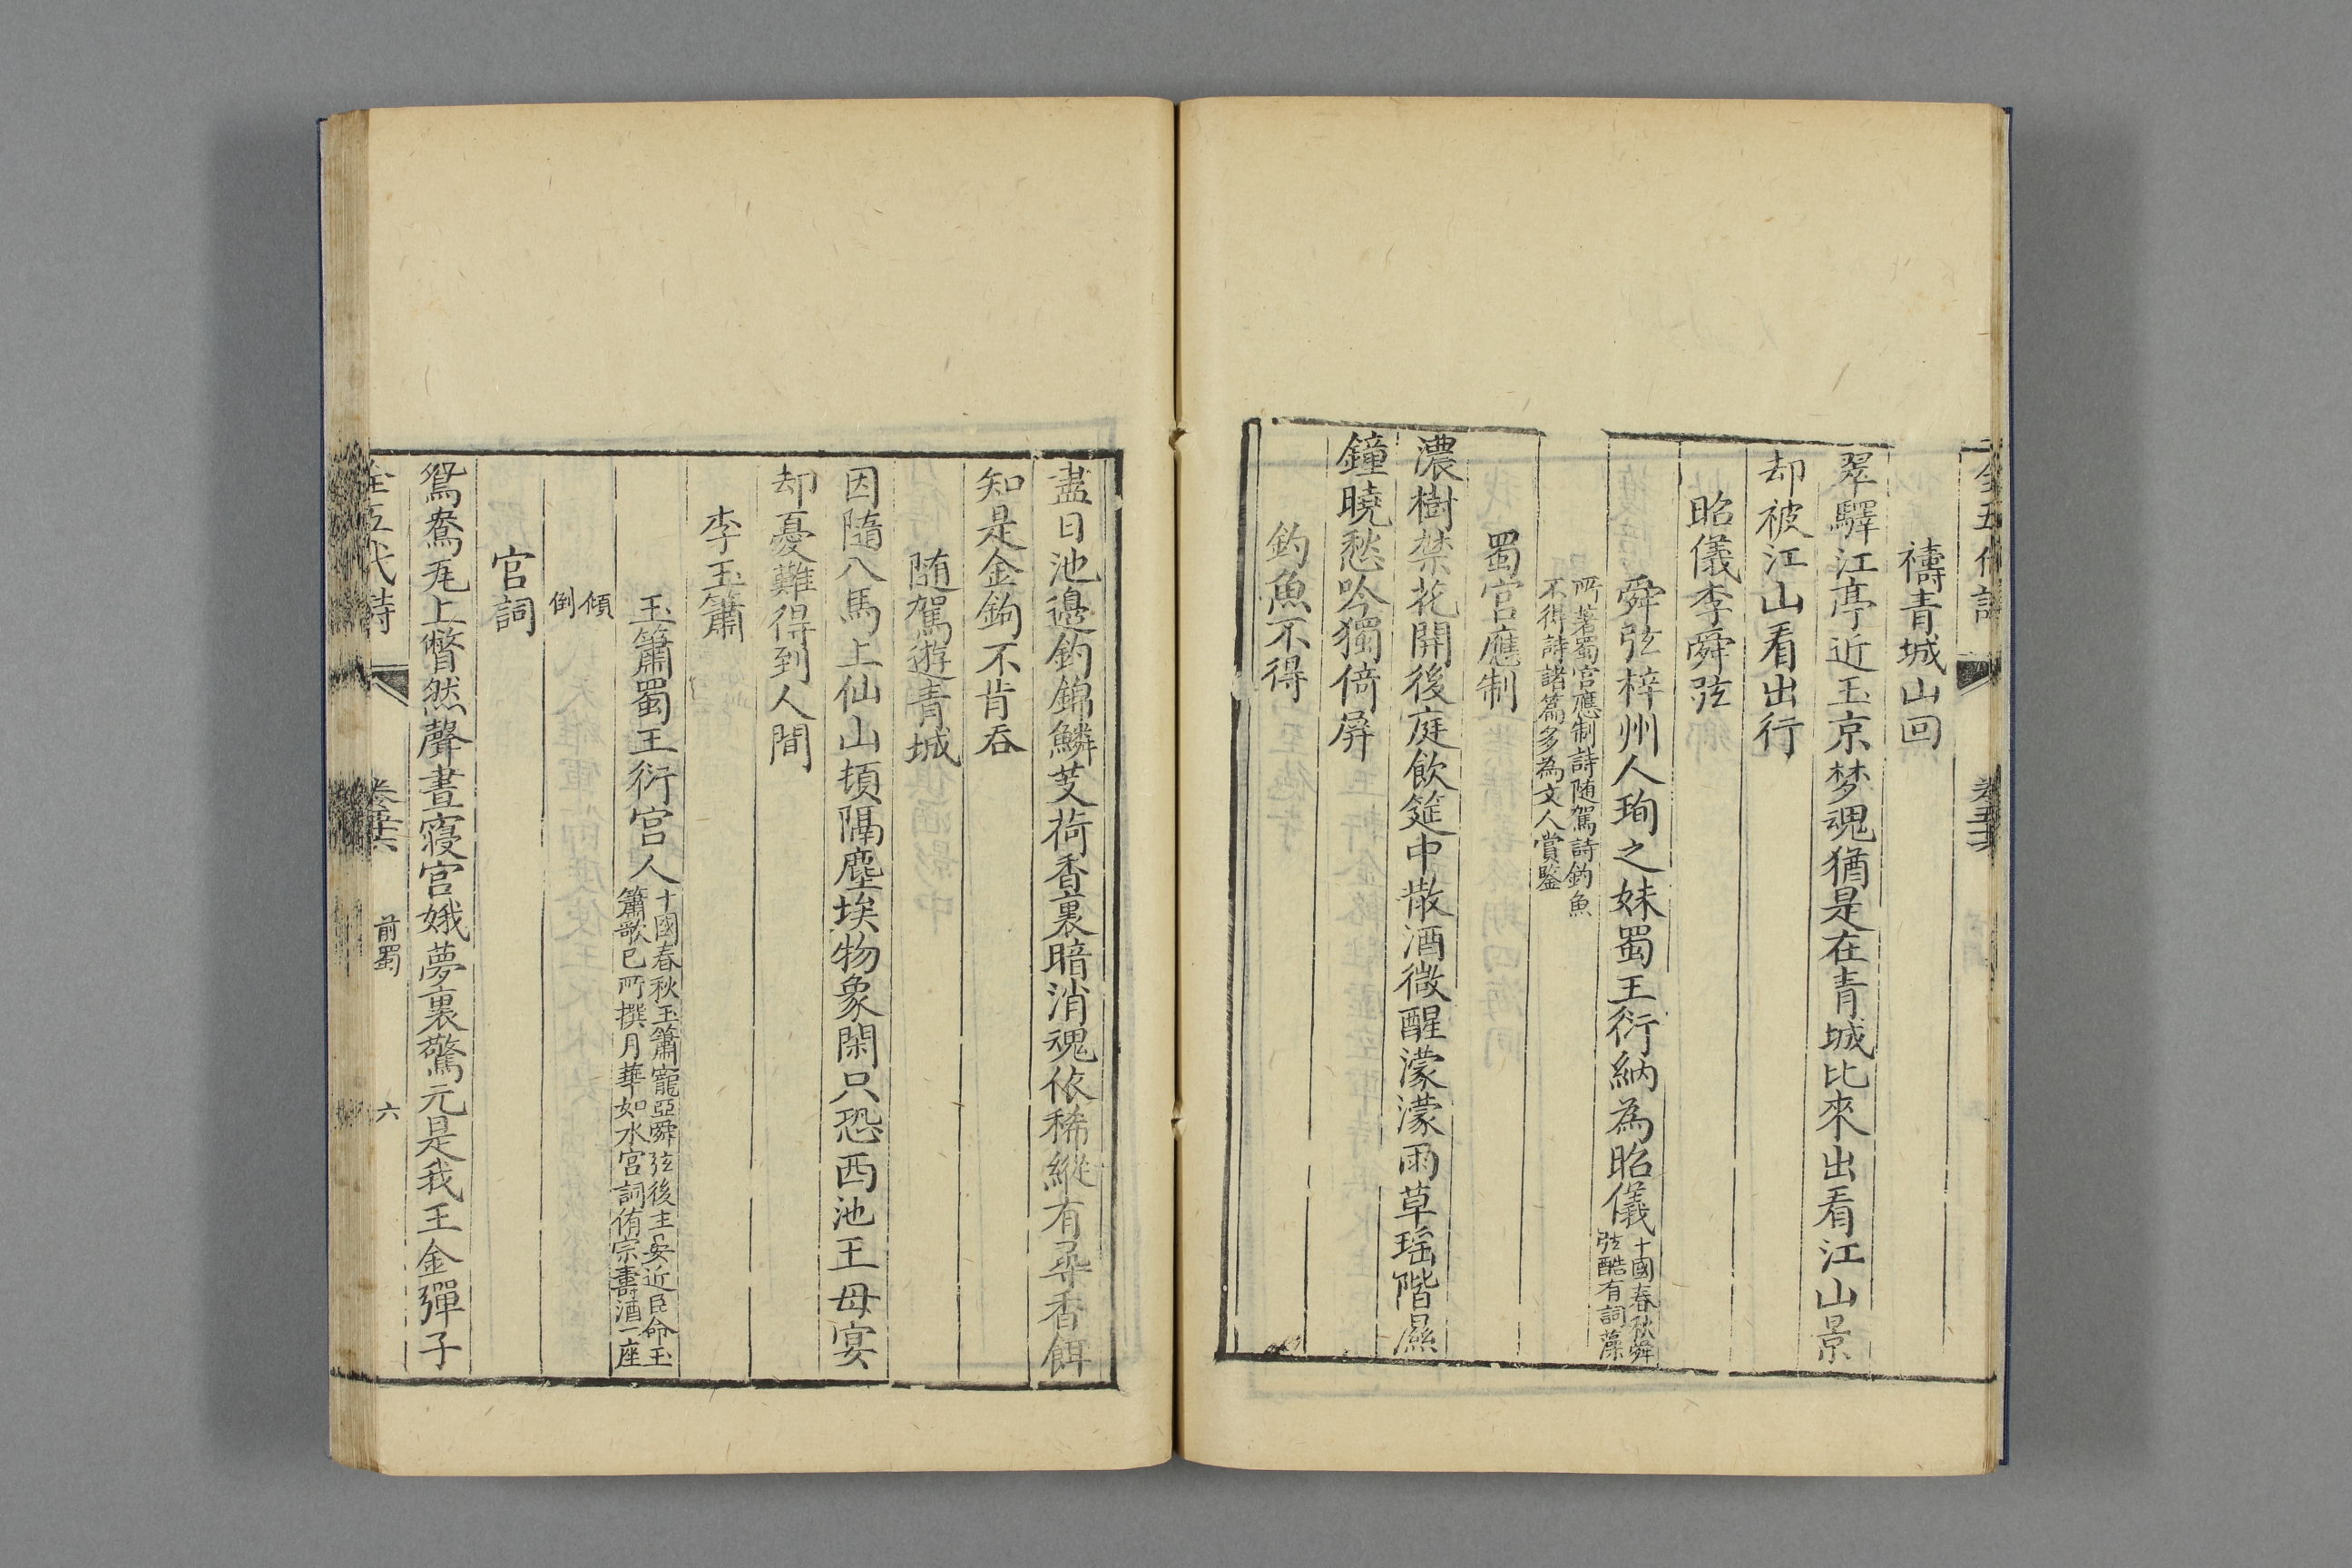 全五代詩
卷五十六
禱青城山回
翠驛江亭近玉京梦魂猶是在青城比來出看江山景
却被江山看出行
昭儀李舜弦
舜弦梓州人珣之妹蜀王衍納為昭儀十國春秋舜
弦酷有詞藻
所著蜀宫應制詩随駕詩釣魚
不得詩諸篇多為文人賞鑒
蜀宫應制
濃樹禁花開後庭飲筵中散酒微醒濛濛雨草瑶階濕
鐘曉愁吟獨倚屏
釣魚不得
盡日池邊釣錦鱗芰荷香裏暗消魂依稀縱有尋香餌
知是金鉤不肯吞
随駕遊青城
因隨八馬上仙山頓隔塵埃物象閑只恐西池王母宴
却憂難得到人間
李玉簫
玉簫蜀王衍宫人十國春秋玉簫寵亞舜弦後主安近臣命玉
簫歌已所撰月華如水宫詞侑宗壽酒一座
傾
倒
宫詞
鴛鴦瓦上瞥然聲晝寢宫娥夢裏驚元是我王金彈子
全五代詩
前蜀
六